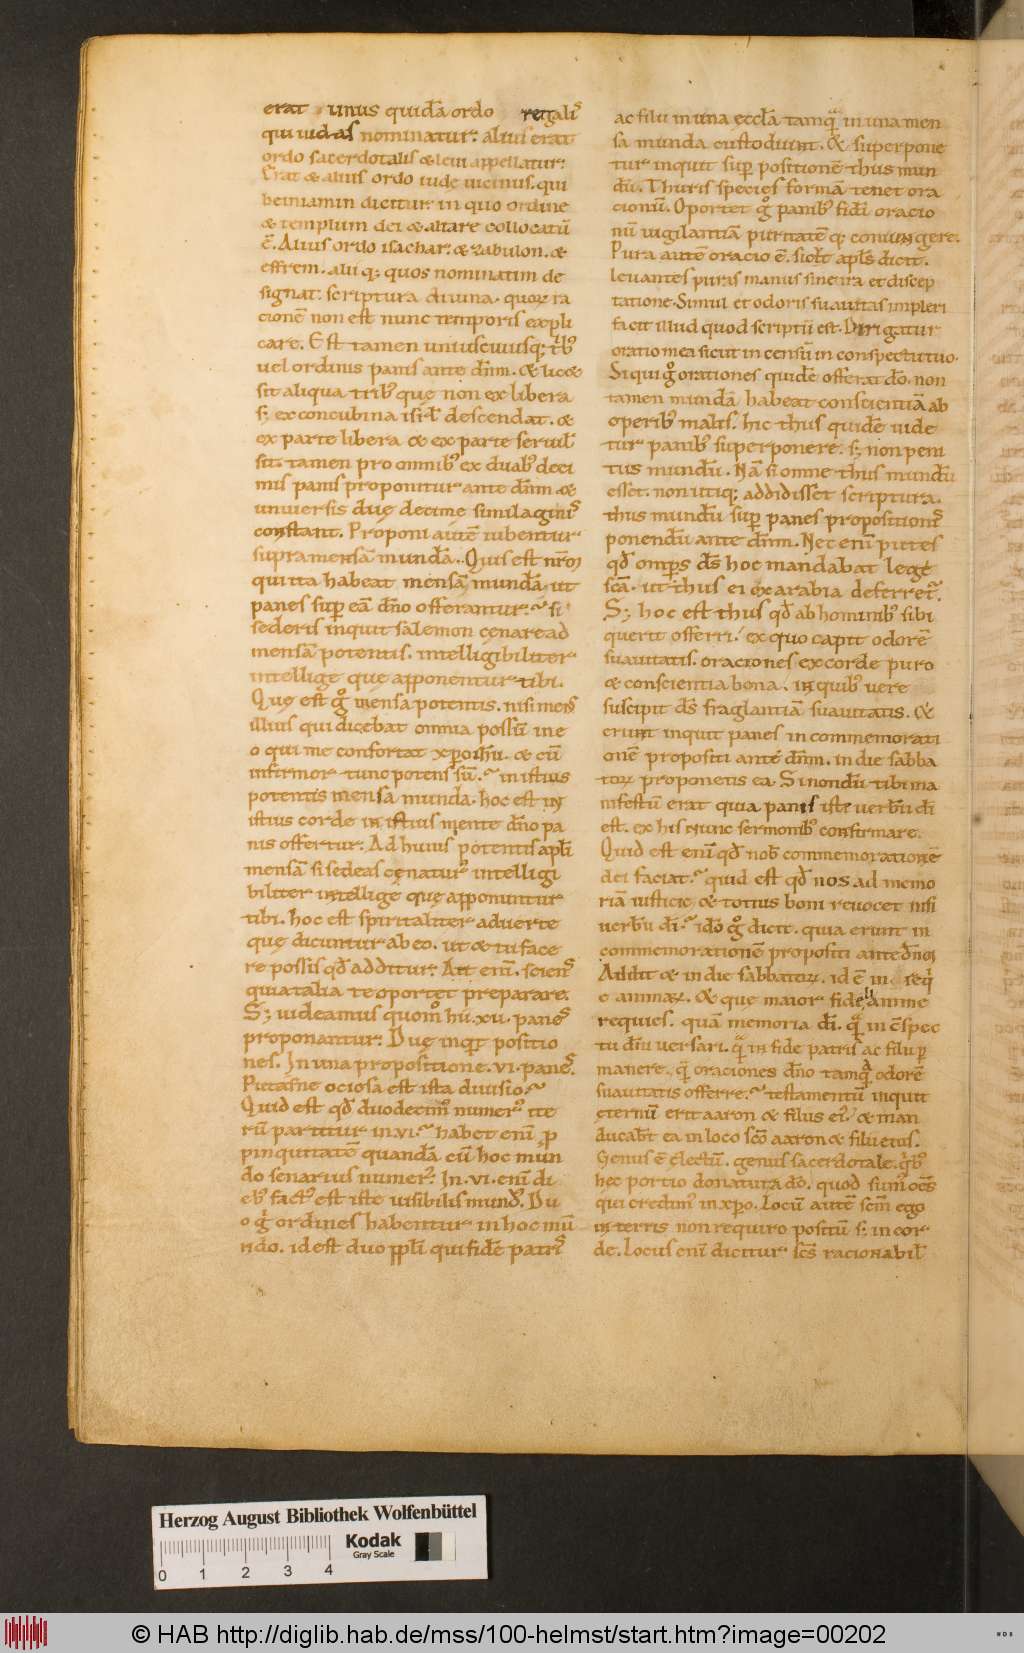 erat unus quidā ordo regalis
qui iudas nominatur. alius erat
ordo sacerdotalis & leui appellatur.
Erat & alius ordo iude uicinus. qui
beiniamin dicitur in quo ordine
& templum dei & altare collocatū
ē. Alius ordo isachar. & zabulon. &
effrem. alii q; quos nominatim de
signat. scriptura diuina. quoꝝ ra
cionē non est nunc temporis expli
care. Est tamen uniuscuiusq; tribꝰ
uel ordinis panis ante dn̄m. & lic&
sit aliqua tribꝰ que non ex libera
s; ex concubina isrł descendat. &
ex parte libera & ex parte seruił
sit. tamen pro omnibꝰ ex duabꝰ deci
mis panis proponitur ante dn̄m. &
uniuersis due decime similaginis
constant. Proponi autē iubentur
supra mensā mundā. Quis est nr̄oꝝ
qui ita habeat mensā mundā. ut
panes sup eā dn̄o offerantur. si
sederis inquit salemon cęnare ad
mensā potentis. intelligibiliter
intellige quę apponentur tibi.
Quę est gͦ mensa potentis. nisi mens
illius qui dicebat omnia possū in e
o qui me confortat xp̄o ih̄u. & cū
infirmor tunc potens sū. in istius
potentis mensa munda. hoc est in
istius corde in istius mente dn̄o pa
nis offertur. Ad huius potentis apłi
mensā si sedeas cęnaturꝰ intelligi
biliter intellige quę apponuntur
tibi. hoc est spiritaliter aduerte
quę dicuntur ab eo. ut & tu face
re possis qd̄ additur. Ait enī. sciens
quia talia te oportet preparare.
S; uideamus quomͦ hii. xii. panes
proponantur. Duę inqͥt positio
nes. In una propositione. vi. panes.
Putasne ociosa est ista diuisio.
Quid est qd̄ duodecimꝰ numerꝰ ite
rū partitur in. vi. habet enī p
pinquitatē quandā cū hoc mun
do senarius numerꝰ. In. vi. enī di
ebꝰ factꝰ est iste uisibilis mundꝰ. Du
o gͦ ordines habentur in hoc mū
ndo. id est duo ppłi qui fidē patris
ac filii in una ecclā tamqͣ in una men
sa munda custodiunt. & superpone
tur inquit sup positionē thus mun
dū. Thuris species formā tenet ora
cionū. Oportet gͦ panibꝰ fidēi oracio
nū uigilantiā puritatē q; coniungere.
Pura autē oracio ē. sicut apłs dicit.
leuantes puras manus sine ira et discep
tatione. Simul et odoris suauitas impleri
facit illud quod scriptū est. Dirigatur
oratio mea sicut in censū in conspectu tuo.
Si qui gͦ orationes quidē offerat dō. non
tamen mundā habeat conscientiā ab
operibꝰ malis. hic thus quidē uide
tur panibꝰ superponere. s; non peni
tus mundū. Nā si omne thus mundū
esset. non utiq; addidisset scriptura.
thus mundū sup panes propositionis
ponendū ante dn̄m. Nec enī putes
qd̄ omp̄s dS hoc mandabat lege
scā. ut thus ei ex arabia deferret.
S; hoc est thus qd̄ ab hominibꝰ sibi
querit offerri. ex quo capit odorē
suauitatis. oraciones ex corde puro
& conscientia bona. in quibꝰ uere
suscipit dS fraglantiā suauitatis. &
erunt inquit panes in commemorati
onē propositi ante dn̄m. in die sabba
toꝝ proponetis ea. Si nondū tibi ma
nifestū erat quia panis iste uerbū dī
est. ex his nunc sermonibꝰ confirmare.
Quid est enī qd̄ nob̄ commemorationē
dei faciat. quid est qd̄ nos ad memo
riā iusticie & totius boni reuocet nisi
uerbū dī. idō gͦ dicit. quia erunt in
commemorationē propositi ante dn̄m
Addit & in die sabbatoꝝ. id ē in reqͥ
e animaꝝ. & que maior fideli anime
requies. quā memoria dī. qͣ in cspec
tu dn̄i uersari. qͣ in fide patris ac filii p
manere. qͣ oraciones dn̄o tamqͣ odorē
suauitatis offerre. testamentū inquit
ęternū erit aaron & filiis eiꝰ. & man
ducabt ea in loco scō aaron & filii eius.
Genus ē electū. genus sacerdotale. qͥbꝰ
hec portio donatur a dō. quod sumꝰ om̄s
qui credimꝰ in xp̄o. Locū autē scm̄ ego
in terris non requiro positū s; in cor
de. Locus enī dicitur scs̄ racionabił
Herzog August Bibliothek Wolfenbüttel
Kodak
Gray Scale
0 1 2 3 4
© HAB http://diglib.hab.de/mss/100-helmst/start.htm?image=00202